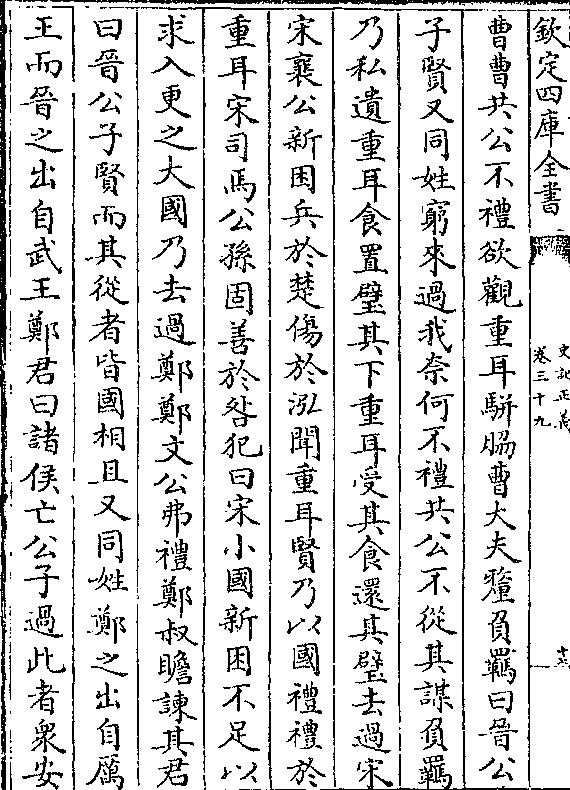 欽定四庫全書
史記正義
卷三十九
曹曹共公不禮欲觀重耳駢脇曹大夫釐負羈曰晉公
子賢又同姓窮來過我柰何不禮共公不從其謀負羈
乃私遺重耳食置璧其下重耳受其食還其璧去過宋
宋襄公新困兵於楚傷於泓聞重耳賢乃以國禮禮於
重耳宋司馬公孫固善於咎犯曰宋小國新困不足以
求入更之大國乃去過鄭鄭文公弗禮鄭叔瞻諫其君
曰晉公子賢而其從者皆國相且又同姓鄭之出自厲
王而晉之出自武王鄭君曰諸侯亡公子過此者衆安